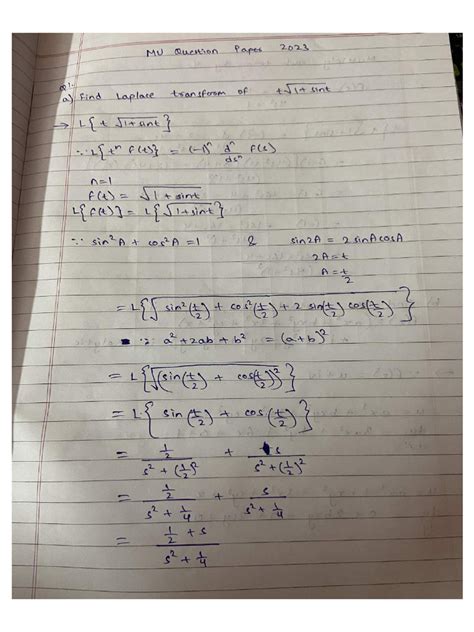 MU Question Paper 2023
Q1.
a) Find Laplace transform of t√(1+sint)
→ L{t √(1+sint)}
∵ L{tⁿ f(t)} = (-1)ⁿ dⁿ/dsⁿ f(s)
n=1
f(t) = √(1+sint)
L{f(t)} = L{√(1+sint)}
∵ sin²A + cos²A = 1 & sin2A = 2 sinA cosA
2A = t
A = t/2
= L{√(sin²(t/2) + cos²(t/2) + 2 sin(t/2) cos(t/2))}
∵ a² + 2ab + b² = (a+b)²
= L{√(sin(t/2) + cos(t/2))²}
= L{sin(t/2) + cos(t/2)}
= (1/2)/(s² + (1/2)²) + s/(s² + (1/2)²)
= (1/2)/(s² + 1/4) + s/(s² + 1/4)
= (1/2 + s)/(s² + 1/4)